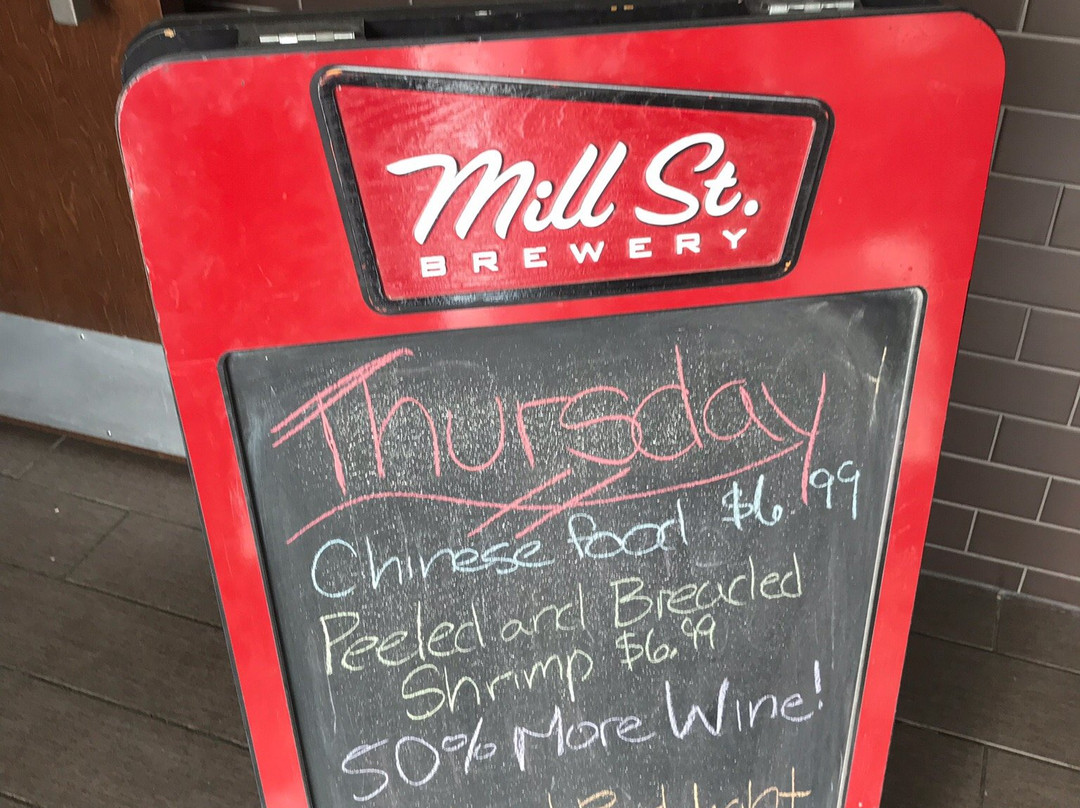 Mill St.
BREWERY
Thursday
Chinese food $6.99
Peeled and Breaded
Shrimp $6.99
50% More Wine!